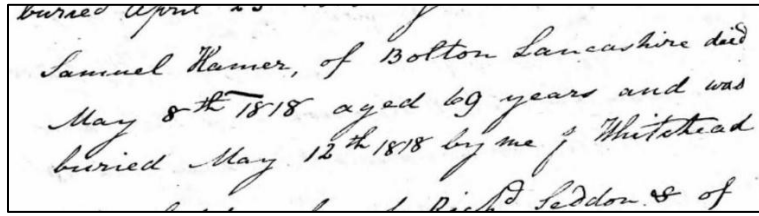 buried April 23
Samuel Hamer, of Bolton Lancashire died
May 8th 1818 aged 69 years and was
buried May 12th 1818 by me J Whitehead
Richd Seddon & of